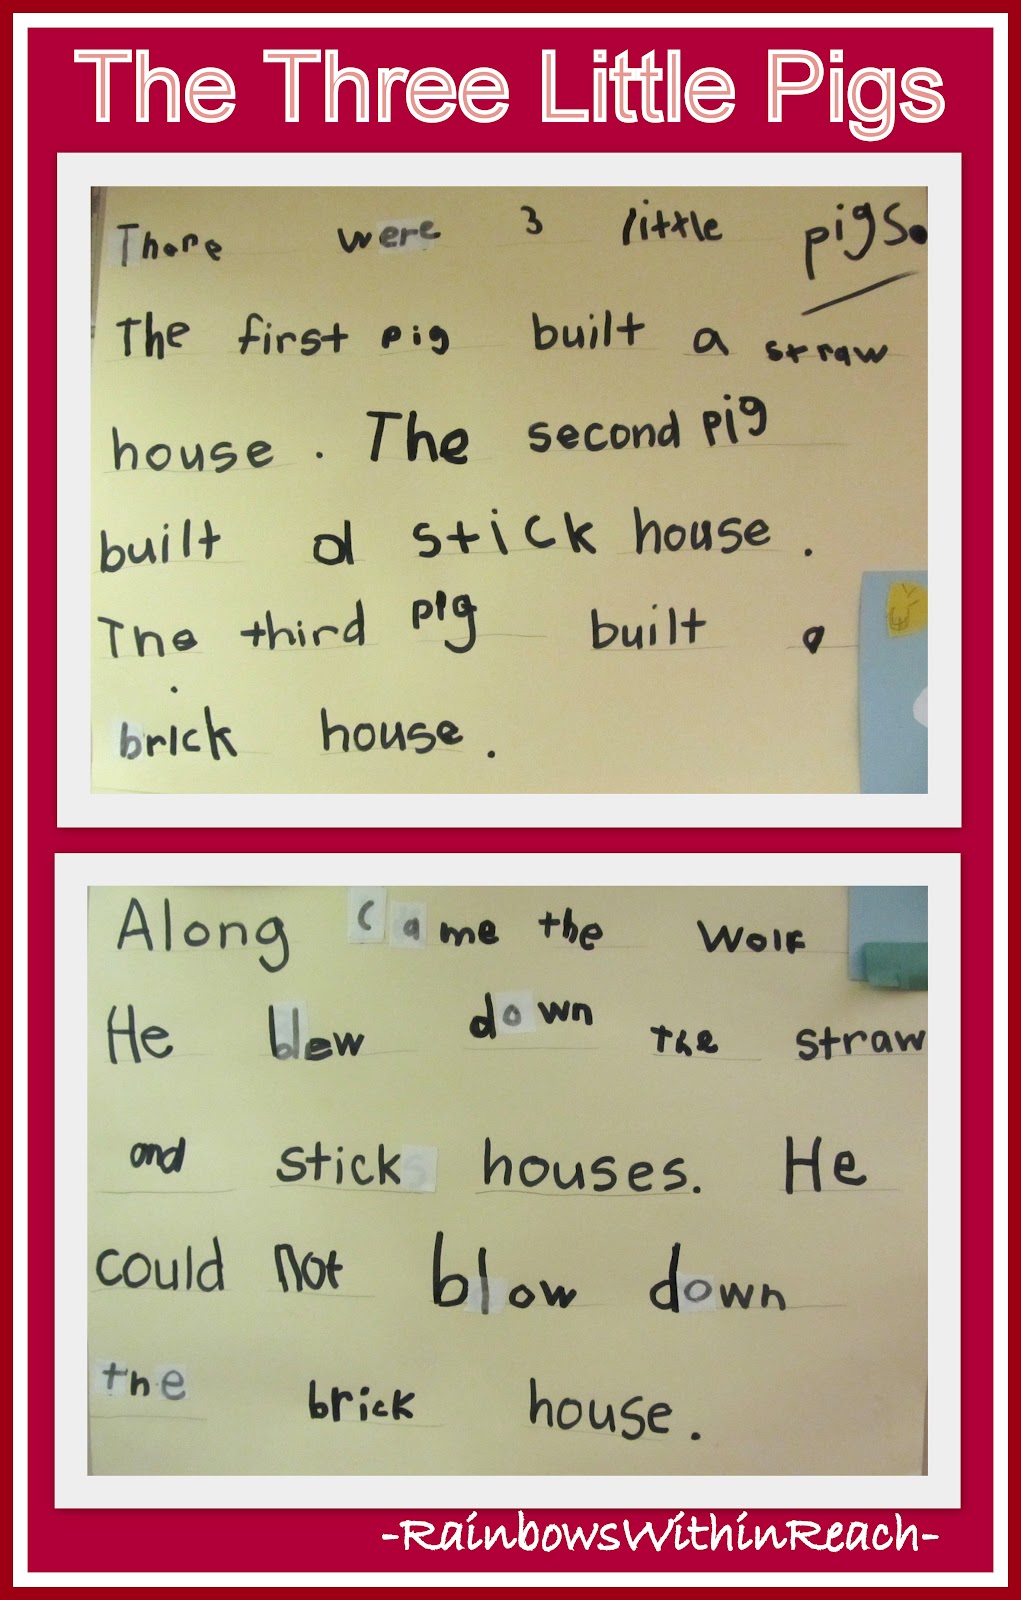 The Three Little Pigs
There were 3 little pigs.
The first pig built a straw
house. The second pig
built a stick house.
The third pig built a
brick house.
Along came the Wolf
He blew down the straw
and sticks houses. He
could not blow down
the brick house.
-RainbowsWithinReach-